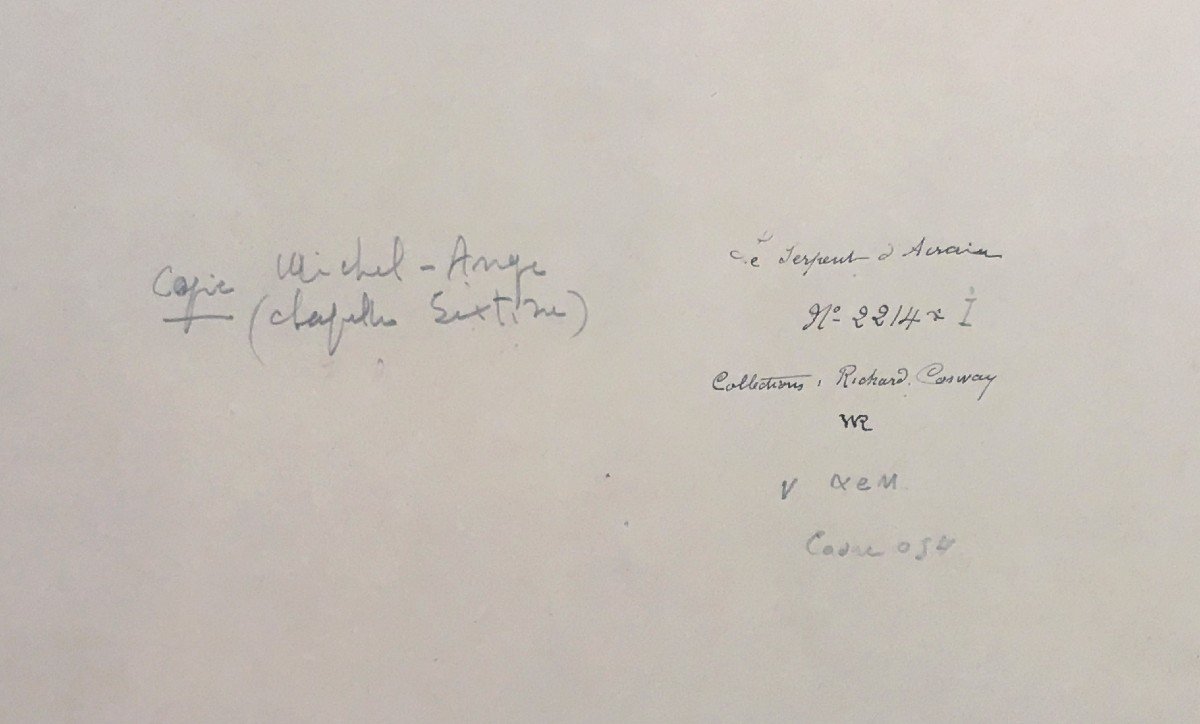 Copie Michel-Ange
(chapelle Sixtine)
Le Serpent d'Airain
No 2214 x I
Collections, Richard Cosway
WR
Cadre